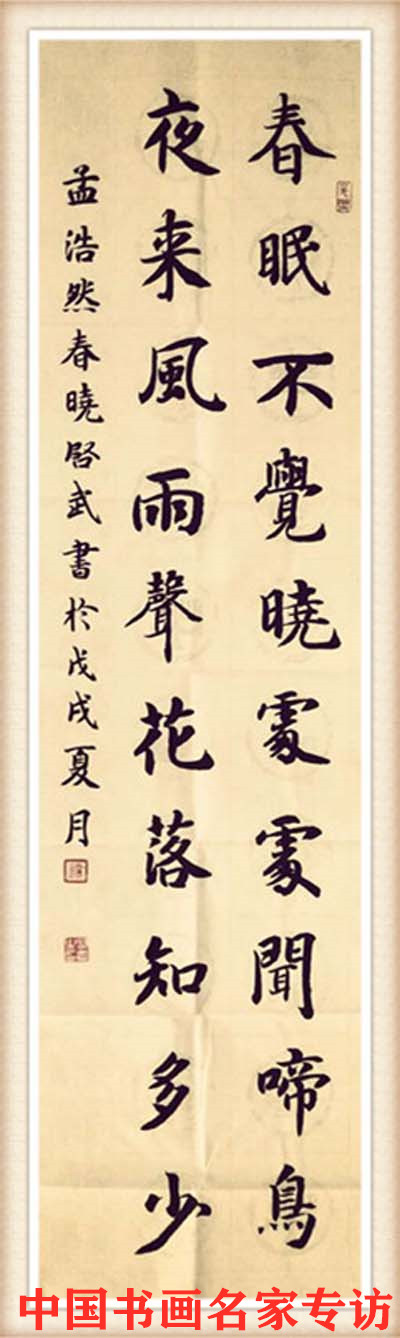 春眠不覺曉處處聞啼鳥
夜来風雨聲花落知多少
孟浩然春曉啓武書於戊戌夏月
中国书画名家专访